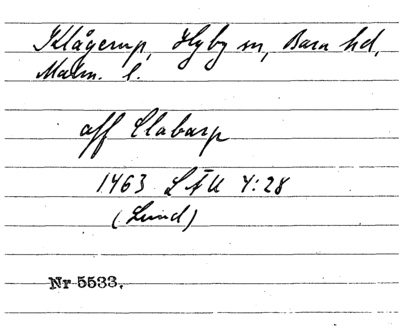 Klågerup, Hyby sn, Bara hd,
Malm. l.
aff Clabarp
1463 LÄU 4:28
(Lund)
Nr 5533.